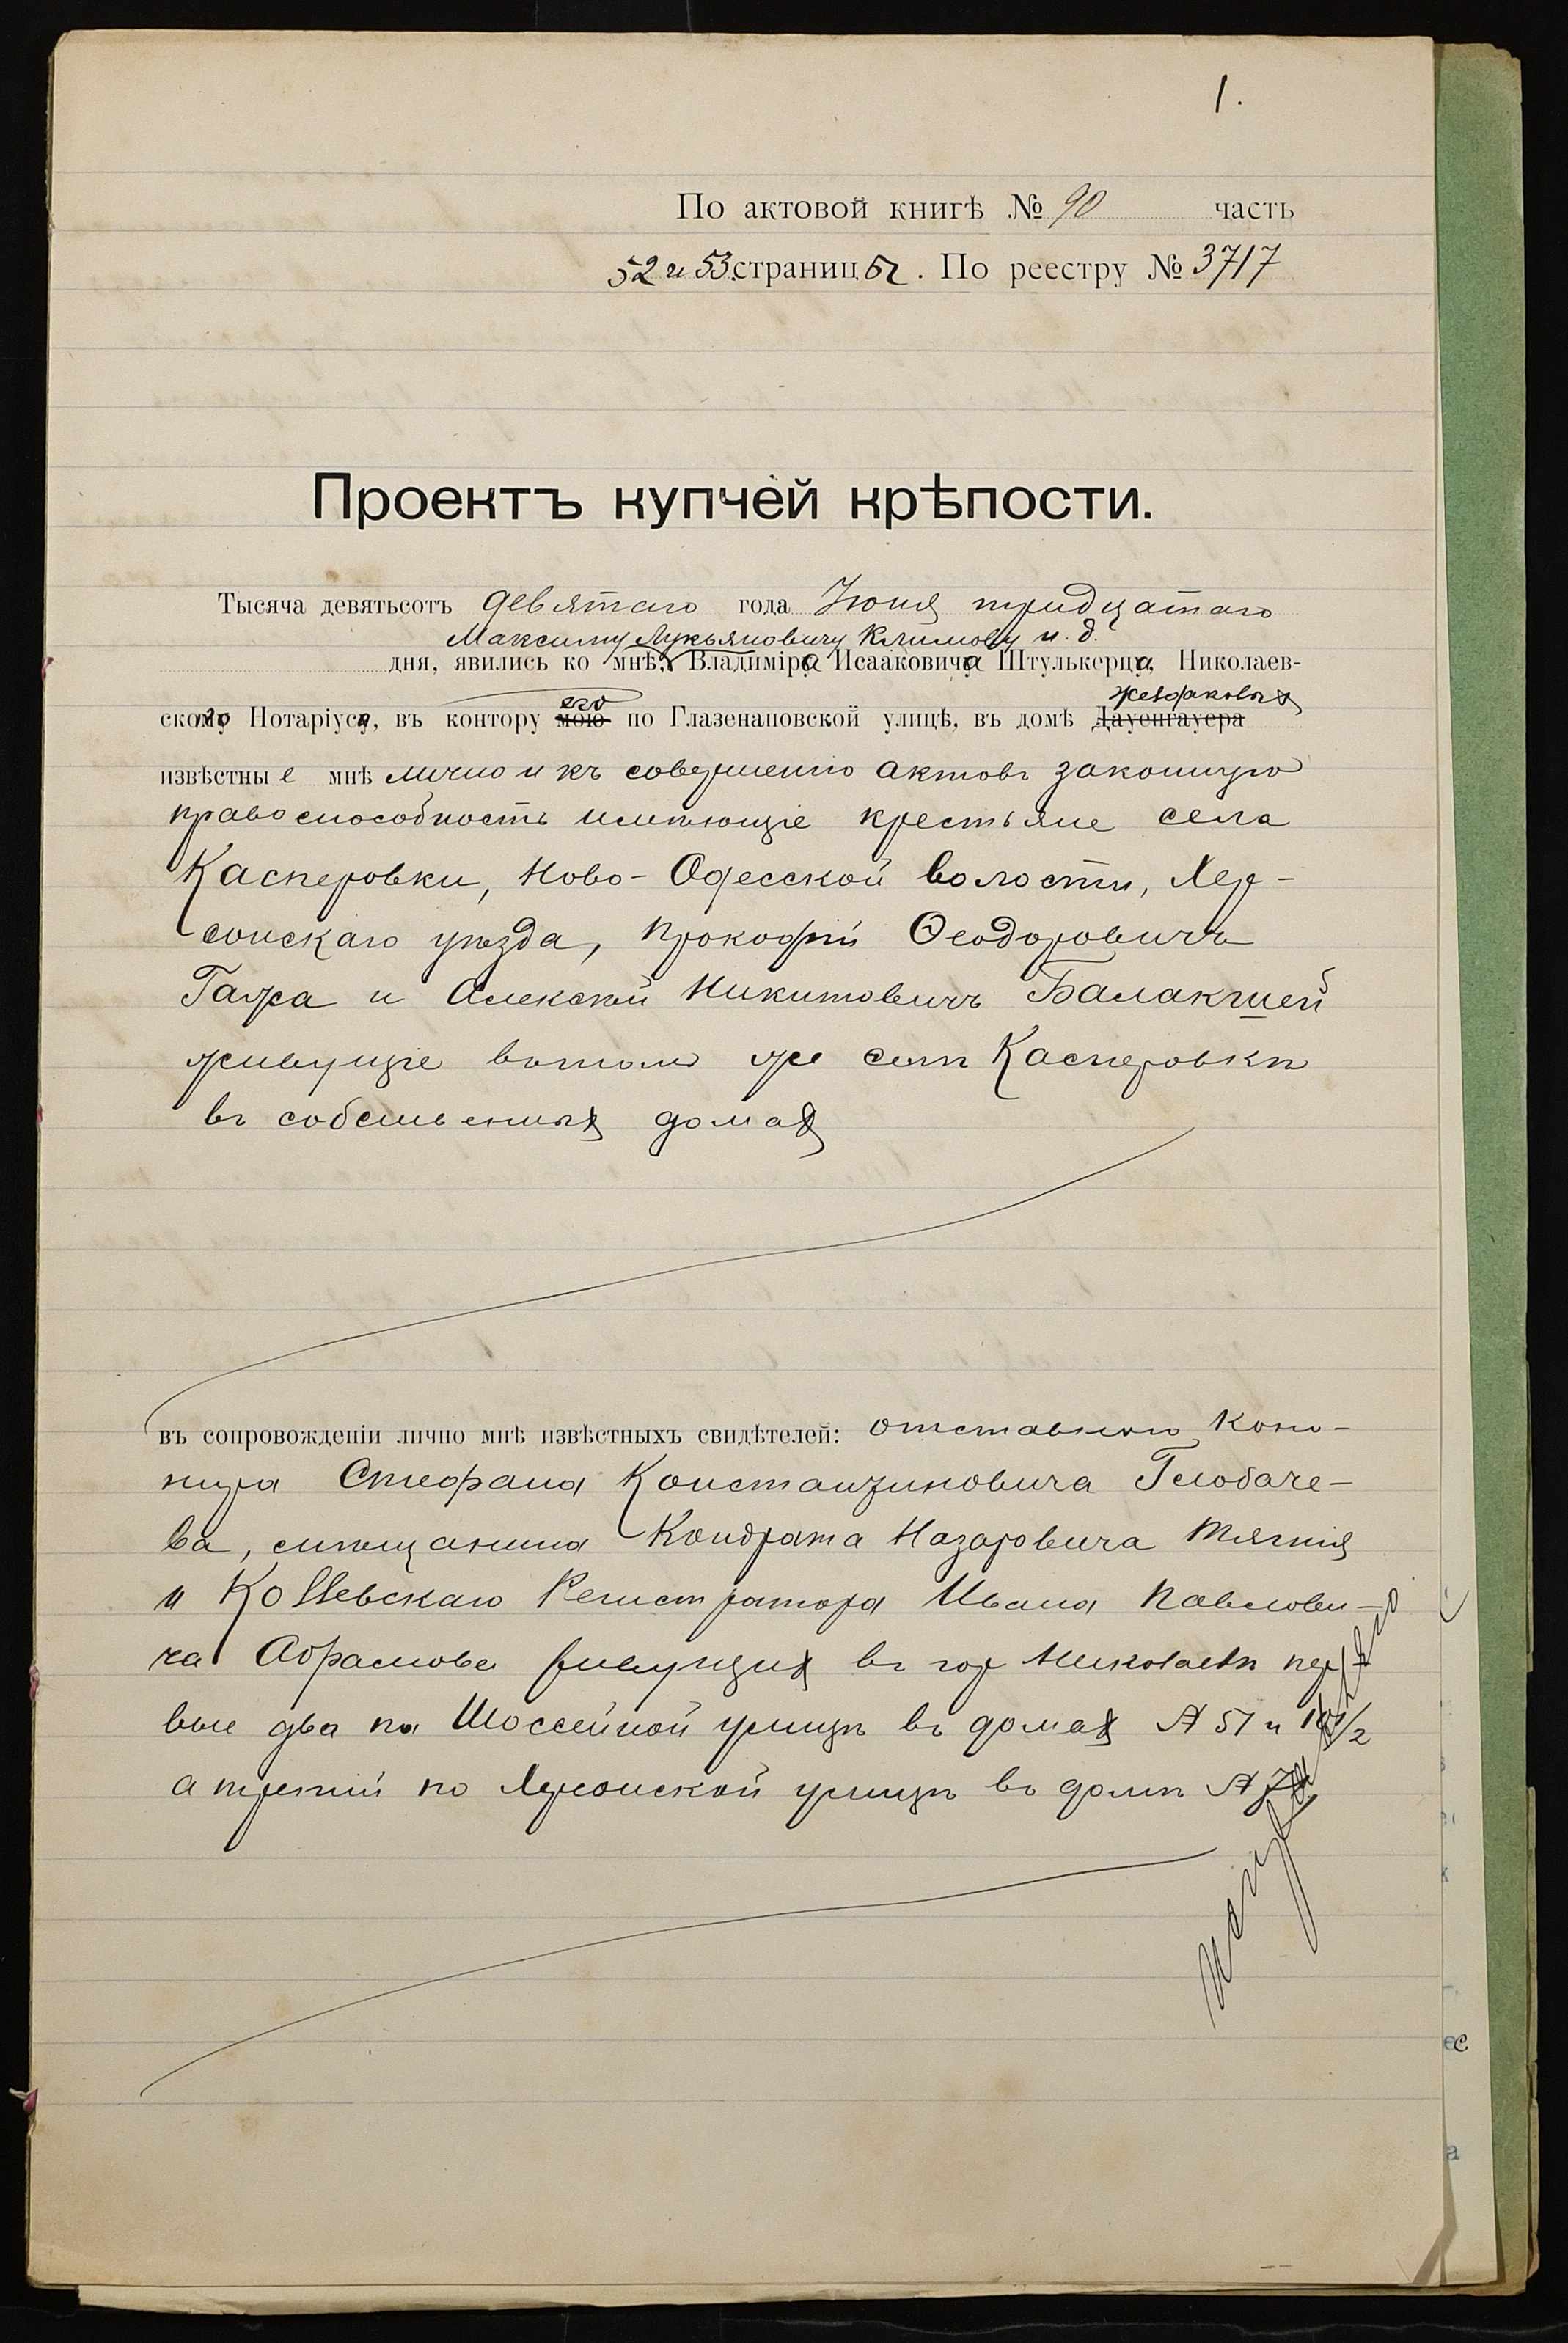 1.
По актовой книгѣ № 90 часть
52 и 53 страницы. По реестру № 3717
Проектъ купчей крѣпости.
Тысяча девятьсотъ девятаго года Іюня тридцатаго
Максиму Лукьяновичу Климову и. д.
дня, явились ко мнѣ, Владиміра Исааковича Штулькерца, Николаев-
его Жевдаковыхъ
скаго Нотаріуса, въ контору мою по Глазенаповской улицѣ, въ домѣ Дауенгауера
извѣстные мнѣ лично и къ совершенію актовъ законную
правоспособность имѣющіе крестьяне села
Касперовки, Ново-Одесской волости, Хер-
сонскаго уѣзда, Прокофій Ѳеодоровичъ
Гаяжа и Алексѣй Никитовичъ Балакшей
живущіе въ томъ же селѣ Касперовкѣ
въ собственныхъ домахъ
въ сопровожденіи лично мнѣ извѣстныхъ свидѣтелей: отставного Коно-
нира Стефана Константиновича Глобаче-
ва, мѣщанина Кондрата Назаровича
и Коллежскаго Регистратора Ивана Павлови-
ча Абрамова живущихъ въ гор Николаевѣ пер-
вые два на Шоссейной улицѣ въ домахъ № 51 и
а третій по Херсонской улицѣ въ домѣ №